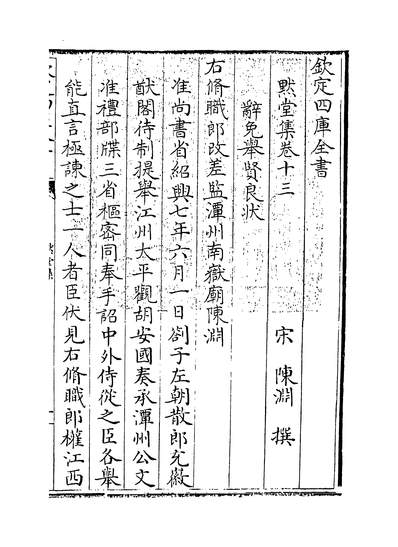 欽定四庫全書
默堂集卷十三
宋 陳淵 撰
辭免舉賢良狀
右脩職郎改差監潭州南嶽廟陳淵
准尚書省紹興七年六月一日劄子左朝散郎充徽
猷閣待制提舉江州太平觀胡安國奏承潭州公文
准禮部牒三省樞宻同奉手詔中外侍從之臣各舉
能直言極諫之士一人者臣伏見右脩職郎權江西